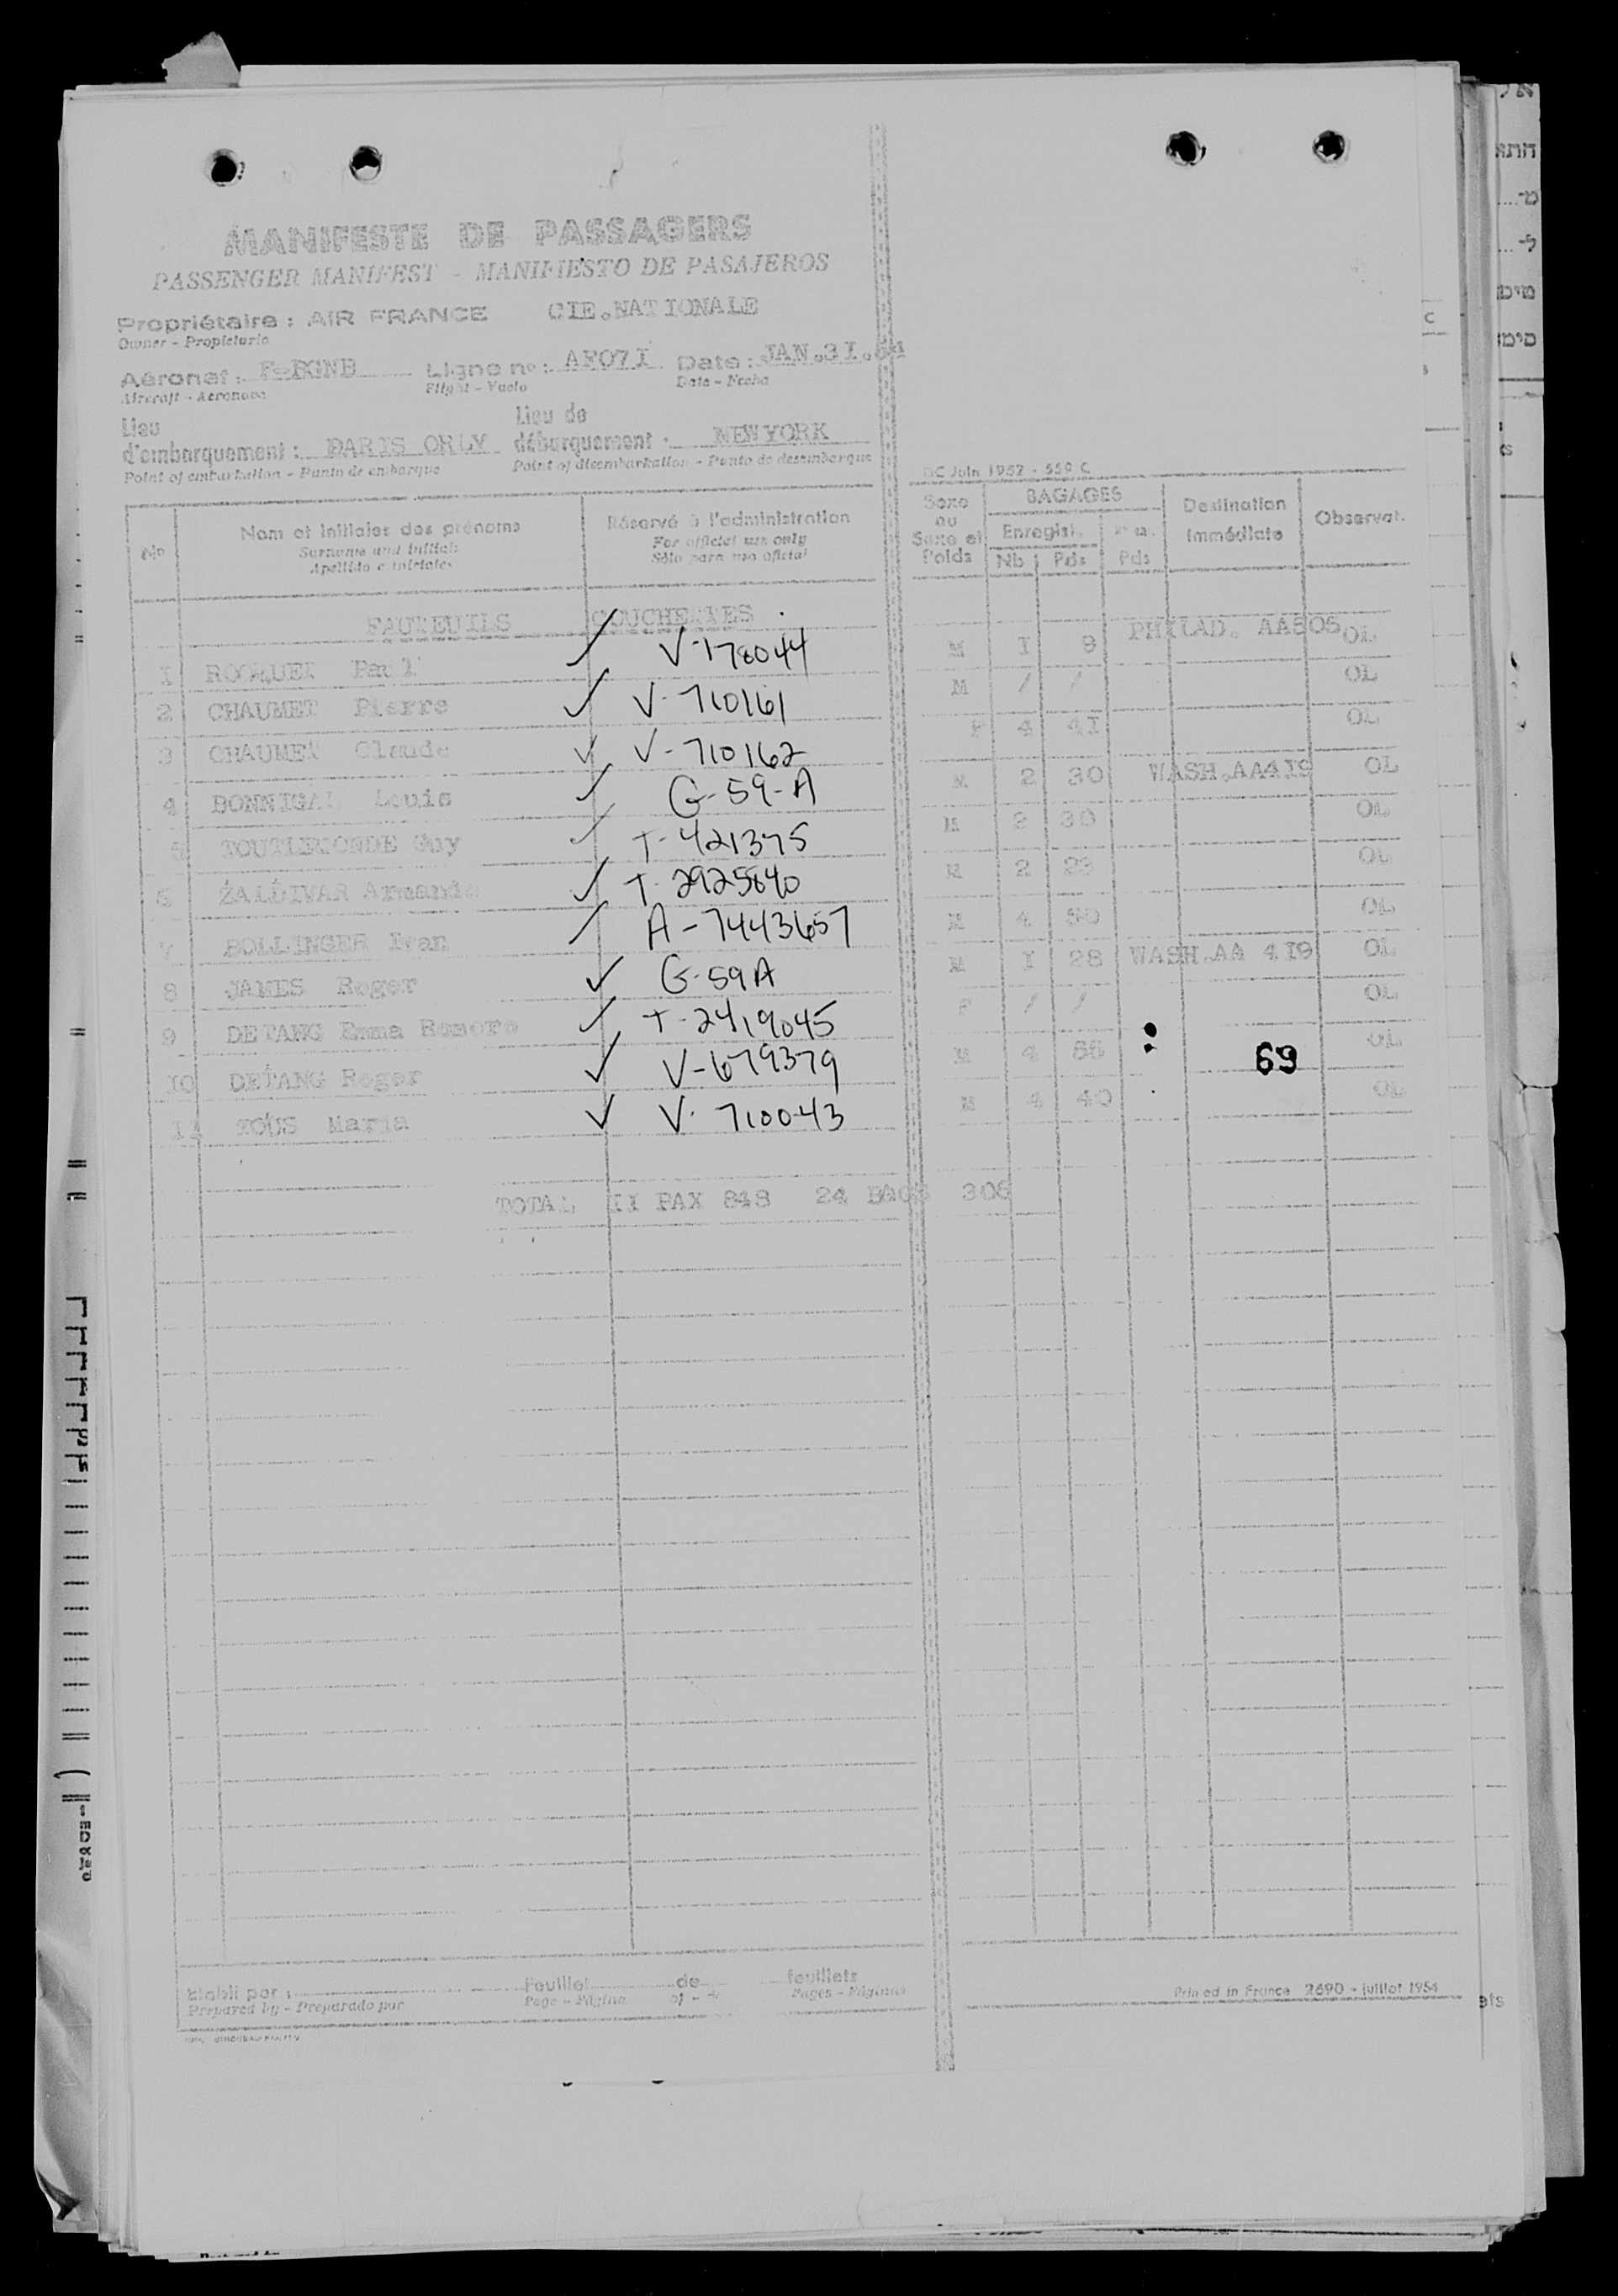 MANIFESTE DE PASSAGERS
PASSENGER MANIFEST - MANIFIESTO DE PASAJEROS
Propriétaire : AIR FRANCE CIE.NATIONALE
Owner - Propietario
Aéronef : Ligne no : AF071 Date : JAN.31.
Aircraft - Aeronave Flight - Vuelo Date - Fecha
Lieu d'embarquement : PARIS ORLY Lieu de débarquement : NEWYORK
Point of embarkation - Punto de embarque Point of disembarkation - Punto de desembarque
DC Juin 1952 - 559 C
No Nom et initiales des prénoms Réservé à l'administration Sexe ou Sexe et Poids BAGAGES Destination immédiate Observat.
Surname and initials For official use only Enregist.
Apellido e iniciales Sólo para uso oficial Nb Pds Pds
FAUTEUILS COUCHETTES
1 Paul V-178044 M I 9 PHILAD. AA505 OL
2 CHAUMET Pierre V-710161 M / / OL
3 CHAUMET Claude V-710162 F 4 4I OL
4 BONNIGAL Louis G-59-A M 2 30 WASH.AA4I9 OL
5 TOUTLEMONDE Guy T-421375 M 2 30 OL
6 ZALDIVAR Armando T-2925840 M 2 23 OL
7 BOLLINGER Ivan A-7443657 M 4 50 OL
8 JAMES Roger G-59A M I 28 WASH.AA 4I9 OL
9 DETANG Emma Romero T-2419045 F / / OL
10 DETANG Roger V-679379 M 4 55 OL
69
11 Maria V-710043 M 4 40 OL
TOTAL II PAX 848 24 BAGS 306
Etabli par : Feuillet de feuillets
Prepared by - Preparado por Page - Página of - de Pages - Páginas
Printed in France 2690 - juillet 1954